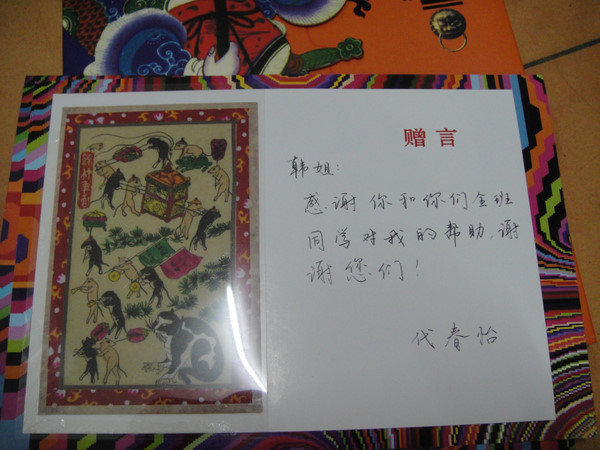 赠言
韩姐：
感谢你和你们全班
同学对我的帮助，谢
谢您们！
代春怡